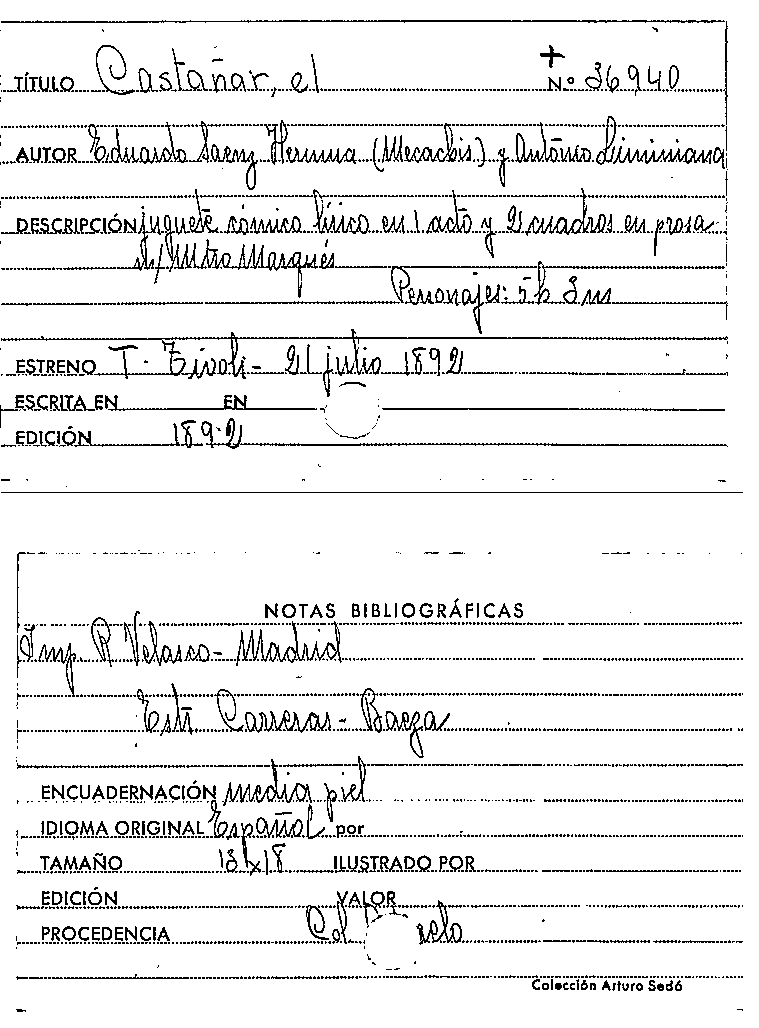 TÍTULO Castañar, el + Nº 36940
AUTOR Eduardo Saenz Hermua (Mecachis) y Antonio Liminiana
DESCRIPCIÓN juguete cómico lírico en 1 acto y 2 cuadros en prosa
M/ Mtro Marqués
Personajes: 5h 3m
ESTRENO T. Tivoli - 21 julio 1892
ESCRITA EN EN
EDICIÓN 1892
NOTAS BIBLIOGRÁFICAS
Imp. R Velasco - Madrid
Estr. Carreras - Baeza
ENCUADERNACIÓN media piel
IDIOMA ORIGINAL Español por
TAMAÑO 13x18 ILUSTRADO POR
EDICIÓN VALOR
PROCEDENCIA Col
Colección Arturo Sedó